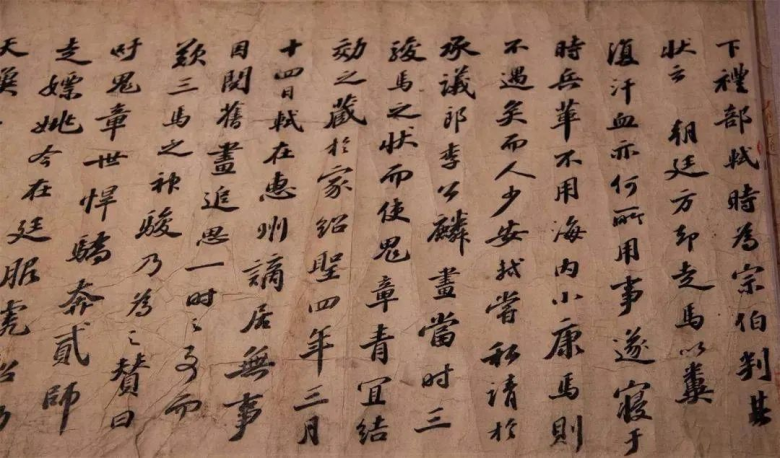 下禮部軾時為宗伯判其
狀云 朝廷方却走馬以糞
復汗血亦何所用事遂寢于
時兵革不用海内小康馬則
不遇矣而人少安軾嘗私請於
承議郎李公麟畫當時三
駿馬之狀而使鬼章青宜結
効之藏於家紹聖四年三月
十四日軾在惠州謫居無事
因閱舊畫追思一時之事而
歎三馬之神駿乃為之贊曰
吁鬼章世悍驕奔貳師
走嫖姚今在廷服虎貂
天